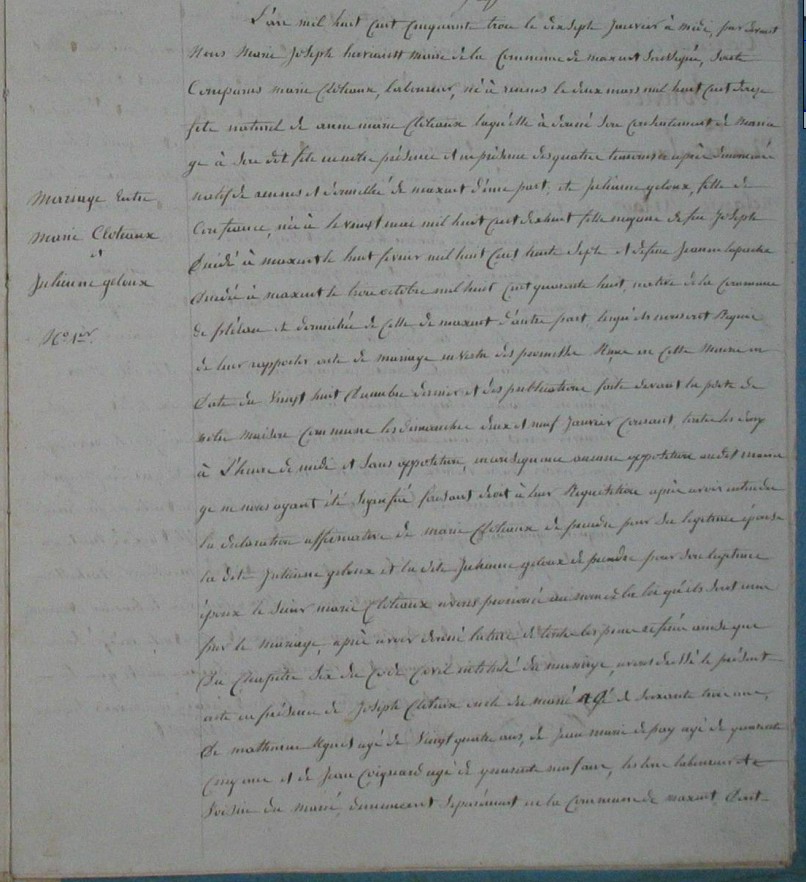 Mariage Entre
Marie Cloteaux
et
Julienne geloux
No. 1er.
L'an mil huit Cent Cinquante trois le dix sept Janvier à midi, par devant
Nous Marie Joseph maire de la Commune de maxent sont
Comparus marie Cloteaux, laboureur, né à rennes le deux mars mil huit Cent
fils naturel de anne marie Cloteaux laquelle à donné son Consentement de maria
ge à son dit fils en notre présence et en présence des quatre temoins ci après dénommés
natif de rennes et domicilié de maxent d'une part, et julienne geloux, fille de
Confiance, née à le vingt mai mil huit Cent dix huit fille majeure de feu Joseph
Décédé à maxent le huit fevrier mil huit Cent trente Sept et de feue Jeanne
Décédée à maxent le trois octobre mil huit Cent quarante huit, native de la Commune
de plélan et domiciliée de Celle de maxent d'autre part, lesquels nous ont Requis
de leur rapporter acte de mariage en vertu des promesses en Cette Mairie en
Date du Vingt huit Décembre dernier et des publications faites devant la porte de
notre maison Commune les dimanches deux et neuf Janvier Courant, toutes les deux
à l'heure de midi et sans opposition, aucune opposition audit maria
ge ne nous ayant été Signifiée faisant droit à leur Requisition après avoir entendu
la declaration affirmative de marie Cloteaux de prendre pour Sa legitime épouse
la dite Julienne geloux et la dite Julienne geloux de prendre pour Son legitime
époux le Sieur marie Cloteaux avons prononcé au nom de la loi qu'ils Sont unis
par le mariage, après avoir donné lecture de toutes les pieces ainsi que
Du Chapitre Six du Code Civil intitulé du mariage, avons dressé le présent
acte en présence de Joseph Cloteaux oncle du marié agé de Soixante trois ans,
De mathurin agé de Vingt quatre ans, de Jean marie de pay agé de quarante
Cinq ans et de Jean Coignard agé de quarante neuf ans, les trois laboureurs et
Voisins du marié, demeurant Séparément en la Commune de maxent, Dont